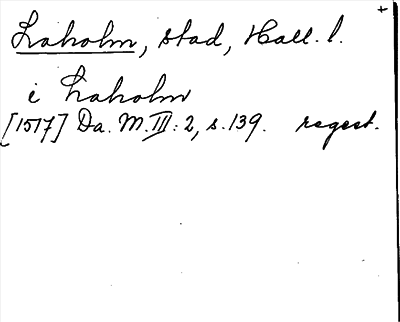 Laholm, stad, Hall. l. +
i Laholm
[1517] Da. M. III: 2, s. 139. regest.